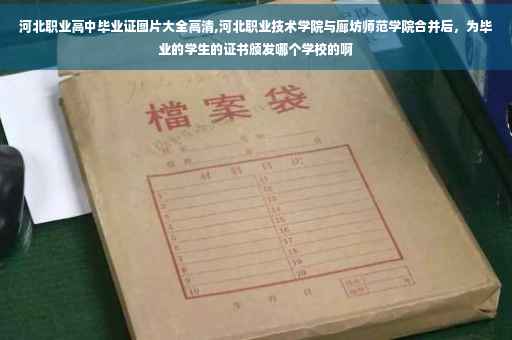 河北职业高中毕业证图片大全高清,河北职业技术学院与廊坊师范学院合并后，为毕
业的学生的证书颁发哪个学校的啊
檔案袋
材料目次
1
2
3
4
5
6
7
8
9
10
11
12
13
14
15
16
17
18
19
20
年 月 日